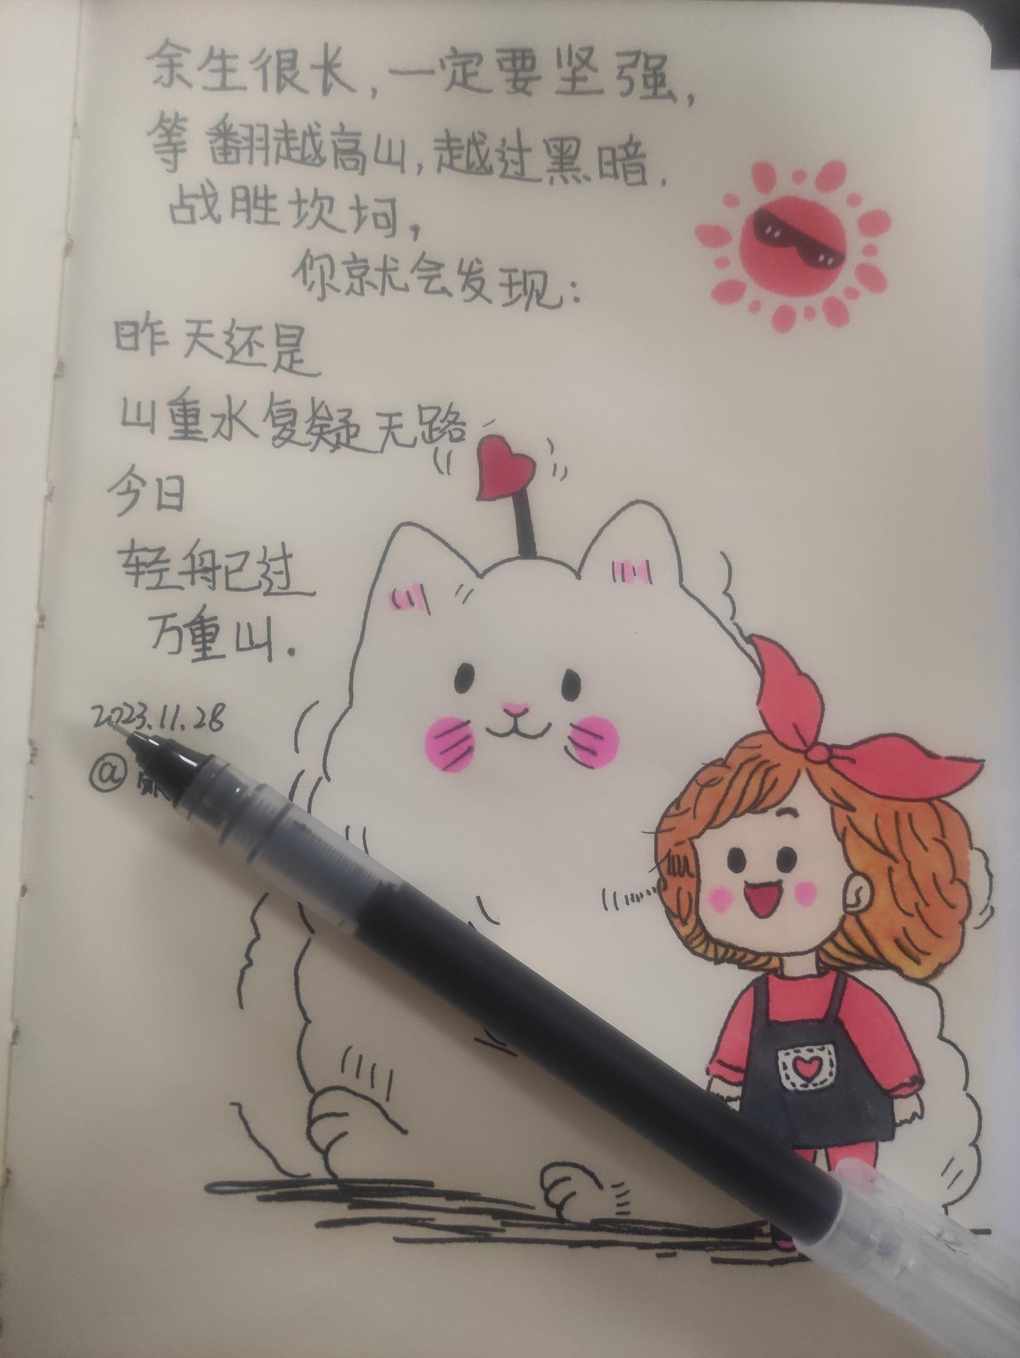 余生很长，一定要坚强，
等翻越高山，越过黑暗.
战胜坎坷，
你就会发现：
昨天还是
山重水复疑无路
今日
轻舟已过
万重山.
2023.11.28
@